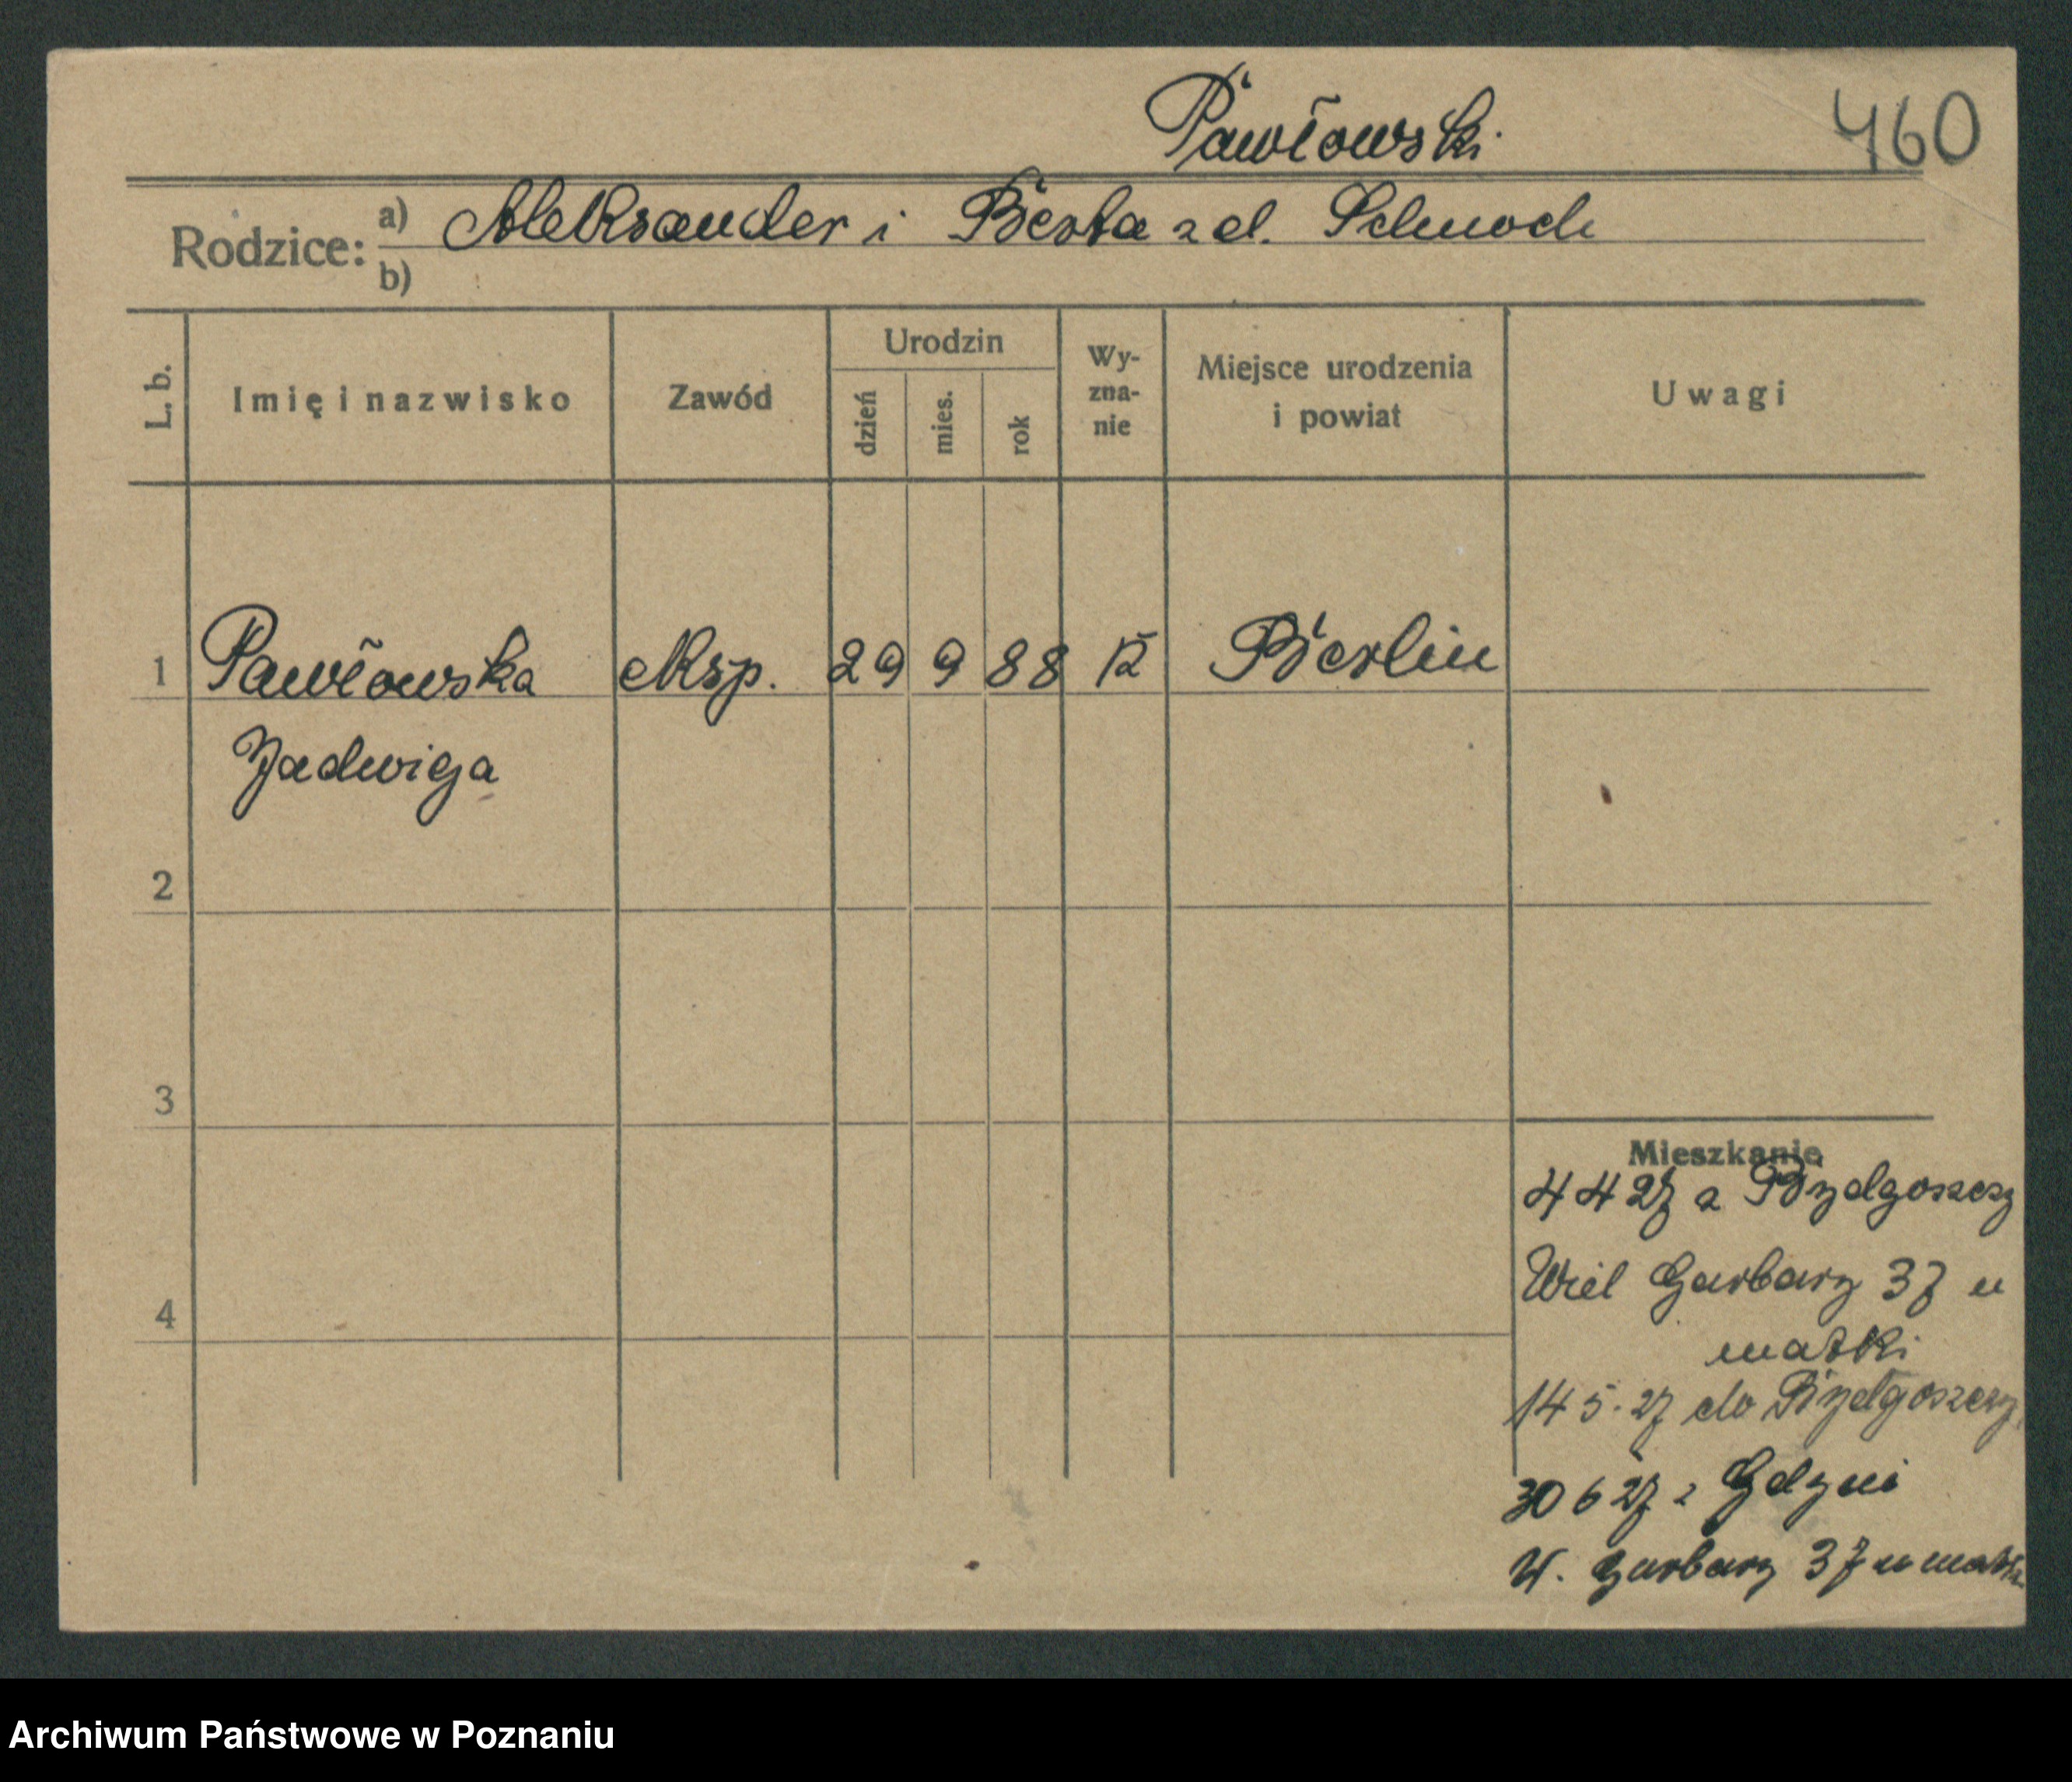 Pawłowski
460
Rodzice: a) Aleksander i Berta z d. Schmoch
b)
L. b.
Imię i nazwisko
Zawód
Urodzin
dzień
mies.
rok
Wy-
zna-
nie
Miejsce urodzenia
i powiat
Uwagi
1 Pawłowska Eksp. 29 9 88 K Berlin
Jadwiga
2
3
4
Mieszkanie
4 4 27 z Bydgoszczy
Wiel Garbary 37 u
matki
14 5. 27 do Bydgoszczy
30 6 27 z Gdyni
W. Garbary 37 u matki
Archiwum Państwowe w Poznaniu